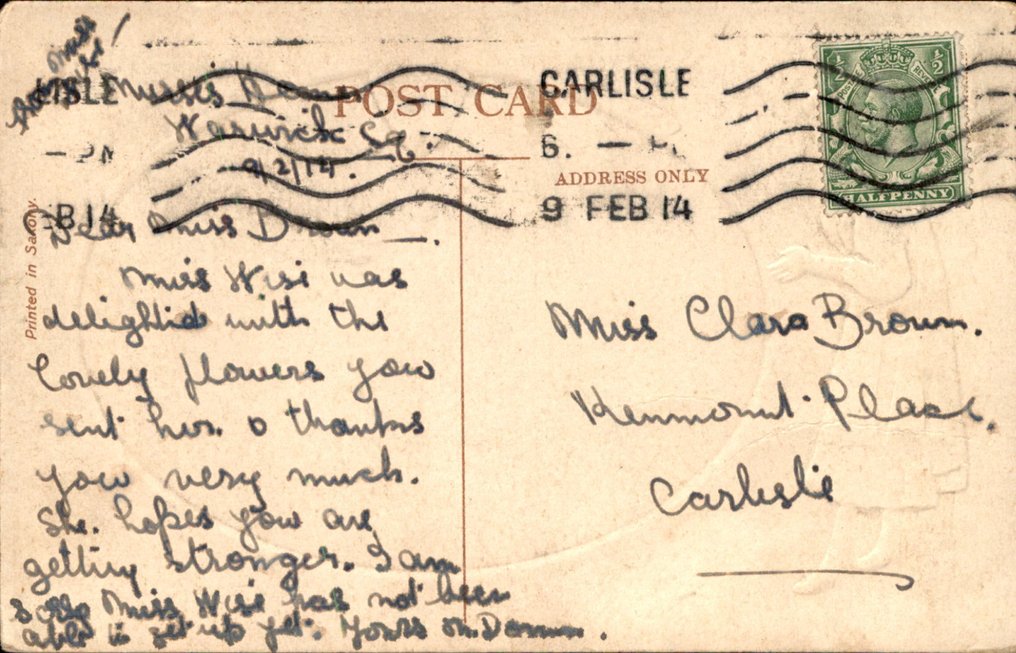 LISLE
— PM
B 14
Nurses Home
Warwick Sq.
9/2/14.
Dear Miss Brown —.
Miss Wise was
delighted with the
lovely flowers you
sent her. & thanks
you very much.
She. hopes you are
getting stronger. I am
sorry Miss Wise has not been
able to get up yet. Yours
Printed in Saxony.
POST CARD
ADDRESS ONLY
CARLISLE
6. —
9 FEB 14
½ ½
HALFPENNY
Miss Clara Brown.
Kenmount Place.
Carlisle